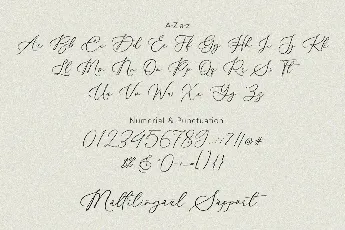 A-Z a-z
Aa Bb Cc Dd Ee Ff Gg Hh Ii Jj Kk
Ll Mm Nn Oo Pp Qq Rr Ss Tt
Uu Vv Ww Xx Yy Zz
Numerial & Punctuation
0123456789
Multilingual Support